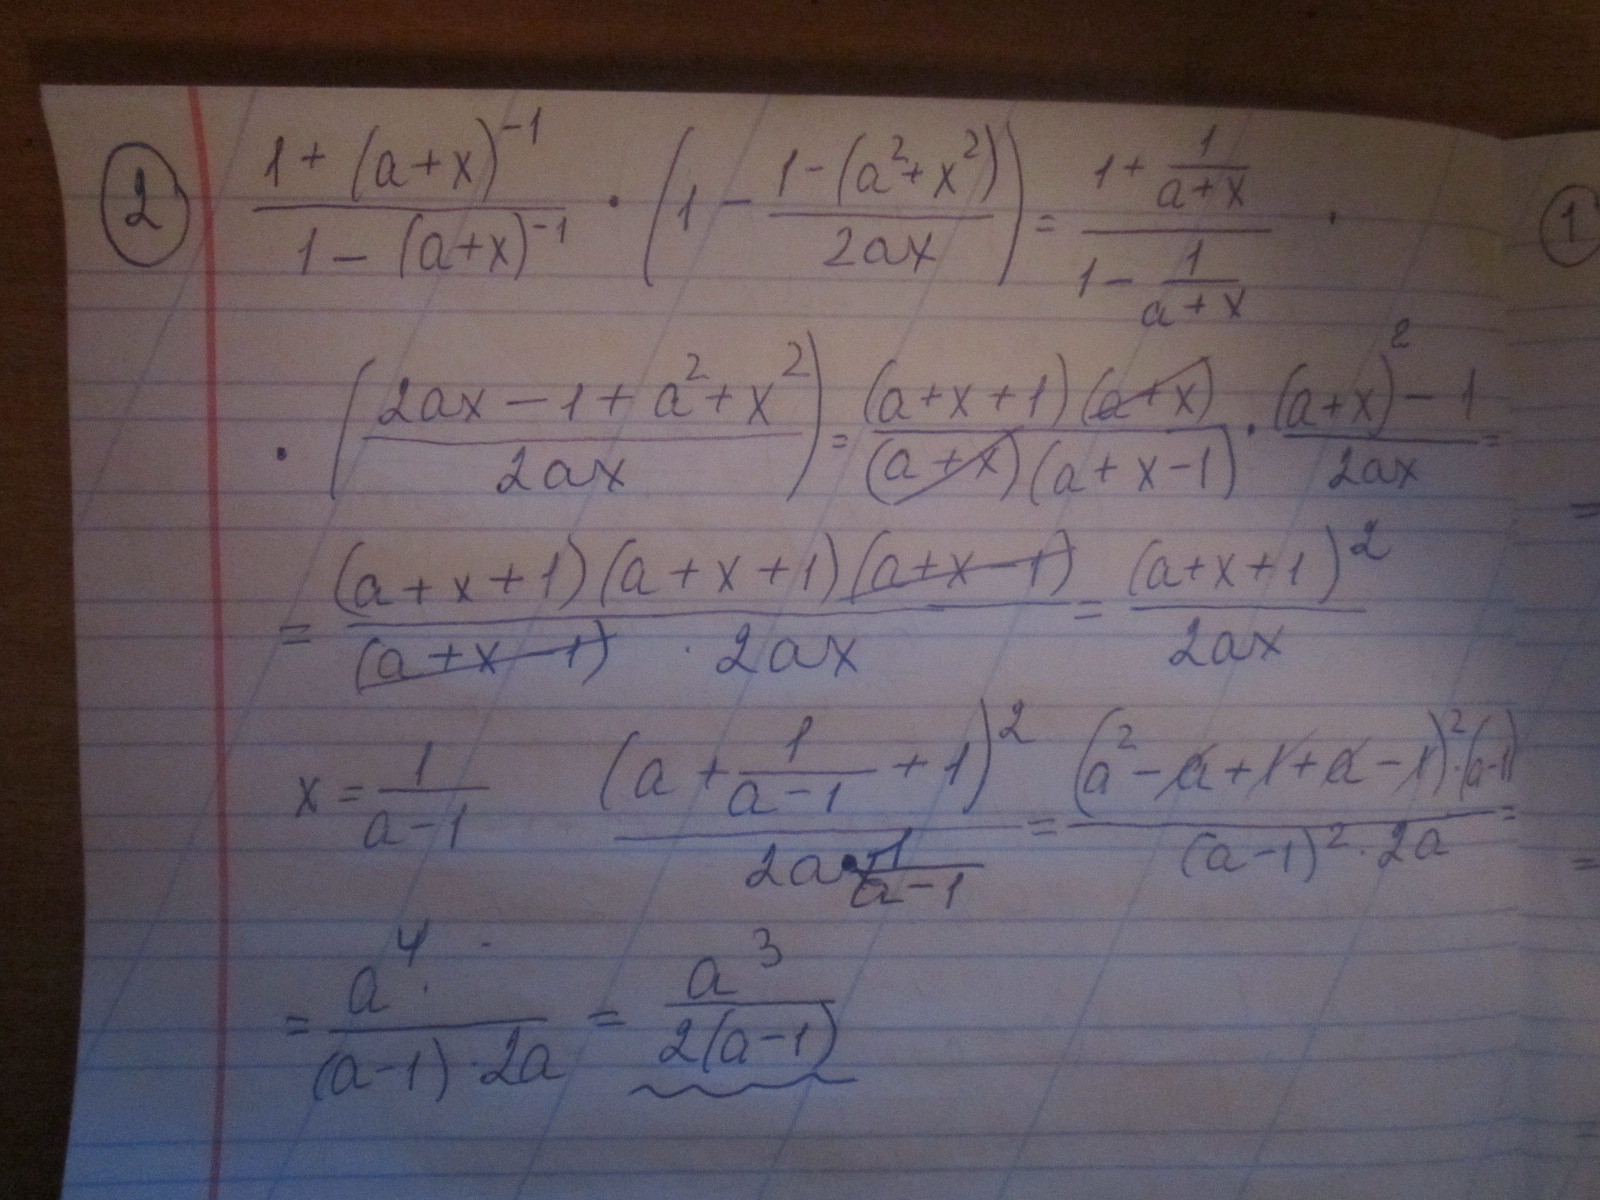 ② (1 + (a+x)^-1)/(1 - (a+x)^-1) · (1 - (1-(a²+x²))/(2ax)) = (1 + 1/(a+x))/(1 - 1/(a+x)) ·
· ((2ax - 1 + a² + x²)/(2ax)) = ((a+x+1)(a+x))/((a+x)(a+x-1)) · ((a+x)² - 1)/(2ax) =
= ((a+x+1)(a+x+1)(a+x-1))/((a+x-1) · 2ax) = (a+x+1)²/(2ax)
x = 1/(a-1) (a + 1/(a-1) + 1)²/(2a · 1/(a-1)) = ((a² - a + 1 + a - 1)² · (a-1))/((a-1)² · 2a) =
= a⁴/((a-1) · 2a) = a³/(2(a-1))
①
=
=